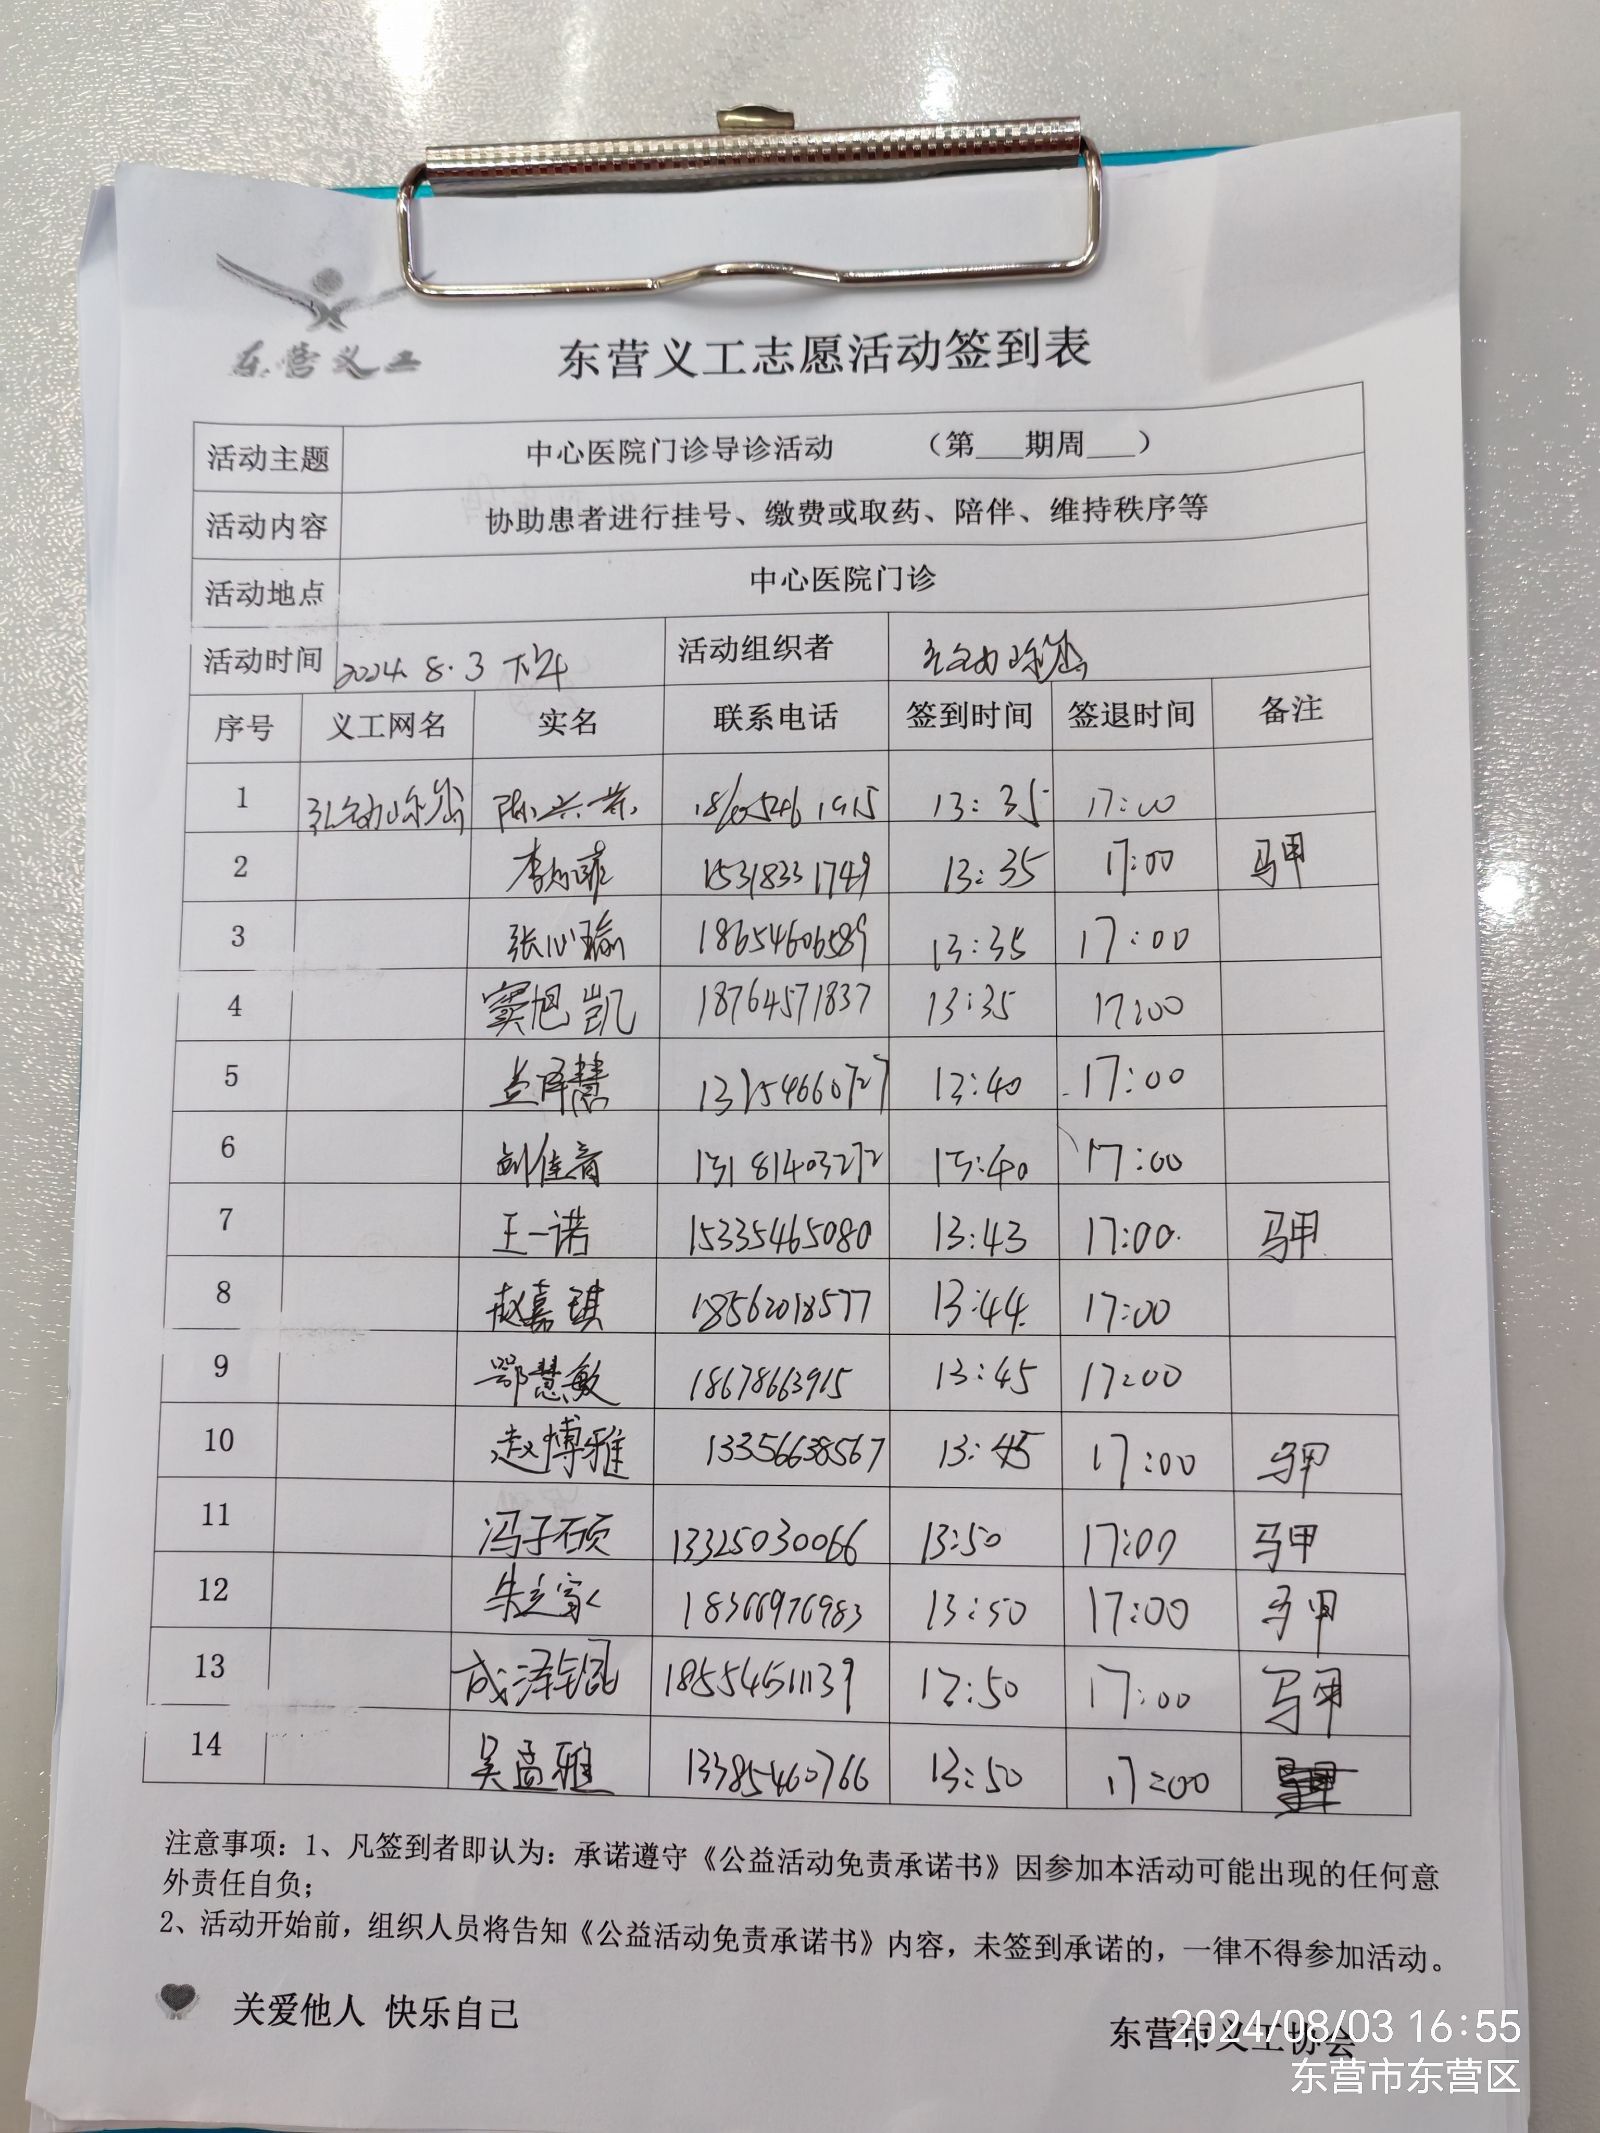 东营义工
东营义工志愿活动签到表
活动主题 中心医院门诊导诊活动 （第___期周___）
活动内容 协助患者进行挂号、缴费或取药、陪伴、维持秩序等
活动地点 中心医院门诊
活动时间 2024.8.3 下午 活动组织者
序号 义工网名 实名 联系电话 签到时间 签退时间 备注
1 陈兴荣 13:35 17:00
2 15318331749 13:35 17:00 马甲
3 张心瑜 18654606589 13:35 17:00
4 窦旭凯 18764571837 13:35 17:00
5 13:40 17:00
6 刘佳音 13181403272 13:40 17:00
7 王一诺 15335465080 13:43 17:00 马甲
8 赵嘉琪 18562018577 13:44 17:00
9 鄂慧敏 18678663915 13:45 17:00
10 赵博雅 13356638567 13:45 17:00 马甲
11 冯子硕 13325030066 13:50 17:00 马甲
12 18366976983 13:50 17:00 马甲
13 成泽锟 18554651139 17:00 马甲
14 吴孟雅 13385460766 13:50 17:00
注意事项：1、凡签到者即认为：承诺遵守《公益活动免责承诺书》因参加本活动可能出现的任何意
外责任自负；
2、活动开始前，组织人员将告知《公益活动免责承诺书》内容，未签到承诺的，一律不得参加活动。
关爱他人 快乐自己
东营市义工协会
2024/08/03 16:55
东营市东营区